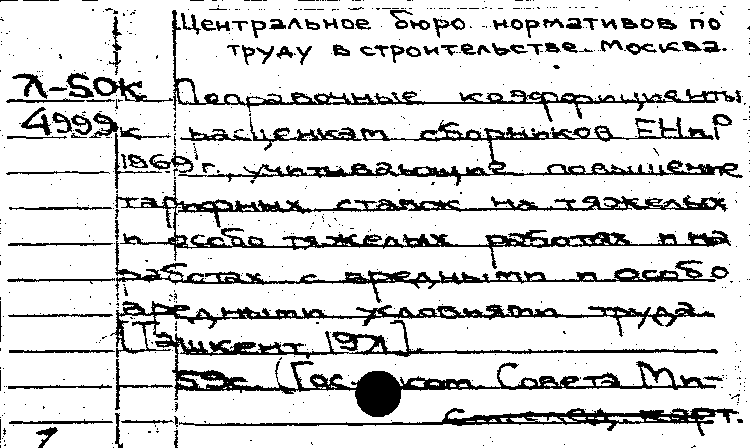 Центральное бюро нормативов по
труду в строительстве. Москва.
Л-50к Поправочные коэффициенты
4999 к расценкам сборников ЕНиР
1969 г., учитывающие повышение
тарифных ставок на тяжелых
и особо тяжелых работах и на
работах с вредными и особо
вредными условиями труда.
[Ташкент, 1971].
59с. (Гос. ком. Совета Ми-
См. след. карт.
1